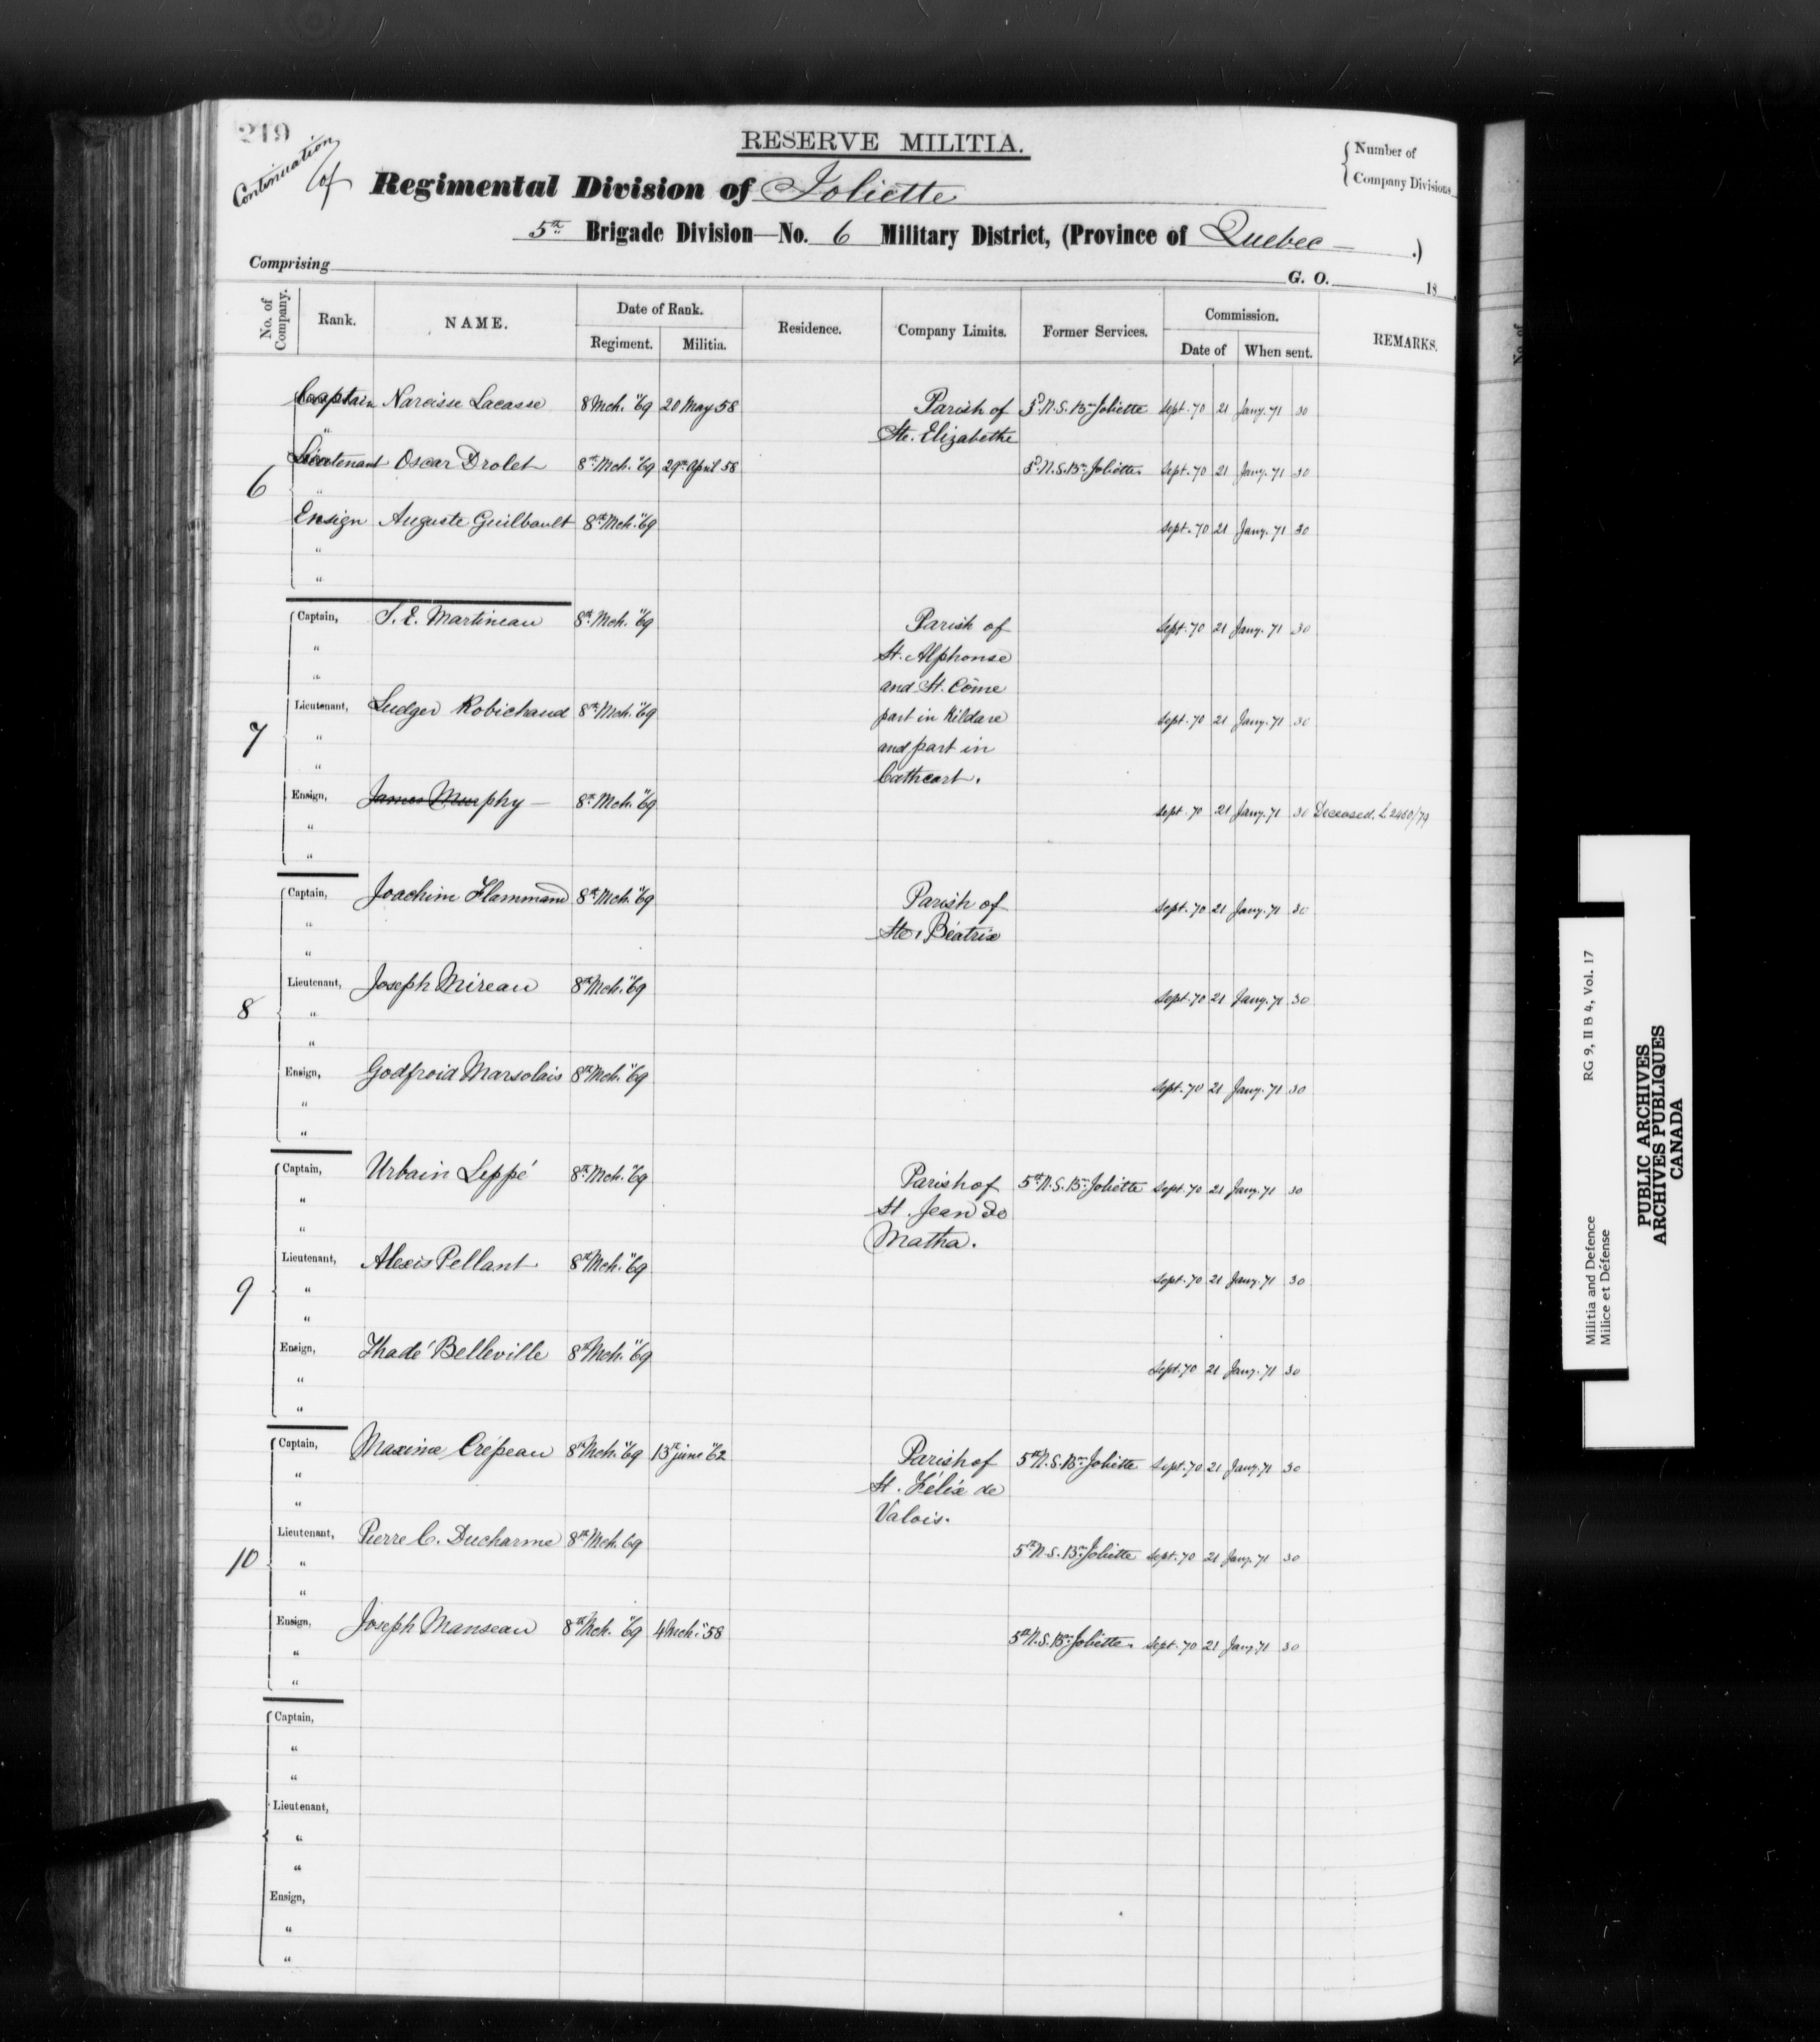 219
RESERVE MILITIA.
Continuation of Regimental Division of Joliette
Number of Company Divisions
5th Brigade Division—No. 6 Military District, (Province of Quebec — .)
Comprising G. O. 18
No. of Company. Rank. NAME. Date of Rank. Regiment. Militia. Residence. Company Limits. Former Services. Commission. Date of When sent. REMARKS.
Captain Narcisse Lacasse 8 Mch. "69 20 May 58 Parish of N.S. Bn Joliette Sept. 70 21 Jany. 71 30
" Ste. Elizabethe
6 Lieutenant Oscar Drolet 8th Mch. "69 29th April 58 N.S. Bn Joliette Sept. 70 21 Jany. 71 30
"
Ensign Auguste Guilbault 8th Mch. "69 Sept. 70 21 Jany. 71 30
"
"
Captain, S. E. Martineau 8th Mch. "69 Parish of Sept. 70 21 Jany. 71 30
" St. Alphonse
" and St. Côme
7 Lieutenant, Ludger Robichaud 8th Mch. "69 part in Kildare Sept. 70 21 Jany. 71 30
" and part in
" Cathcart.
Ensign, James Murphy — 8th Mch. "69 Sept. 70 21 Jany. 71 30 Deceased, L 2460/74
"
"
Captain, Joachim Flammand 8th Mch. "69 Parish of Sept. 70 21 Jany. 71 30
" Ste. Béatrix
"
8 Lieutenant, Joseph Mireau 8th Mch. "69 Sept. 70 21 Jany. 71 30
"
"
Ensign, Godfroid Marsolais 8th Mch. "69 Sept. 70 21 Jany. 71 30
"
"
Captain, Urbain Leppé 8th Mch. "69 Parish of 5th N.S. Bn Joliette Sept. 70 21 Jany. 71 30
" St. Jean de
" Matha.
9 Lieutenant, Alexis Pellant 8th Mch. "69 Sept. 70 21 Jany. 71 30
"
"
Ensign, Thadé Belleville 8th Mch. "69 Sept. 70 21 Jany. 71 30
"
"
Captain, Maxime Crépeau 8th Mch. "69 13th june "62 Parish of 5th N.S. Bn Joliette Sept. 70 21 Jany. 71 30
" St. Félix de
" Valois.
10 Lieutenant, Pierre C. Ducharme 8th Mch. 69 5th N.S. Bn Joliette Sept. 70 21 Jany. 71 30
"
"
Ensign, Joseph Manseau 8th Mch. "69 4 Mch. "58 5th N.S. Bn Joliette. Sept. 70 21 Jany. 71 30
"
"
Captain,
"
"
Lieutenant,
"
"
Ensign,
"
"
No. of
Militia and Defence RG 9, II B 4, Vol. 17
Milice et Défense
PUBLIC ARCHIVES
ARCHIVES PUBLIQUES
CANADA